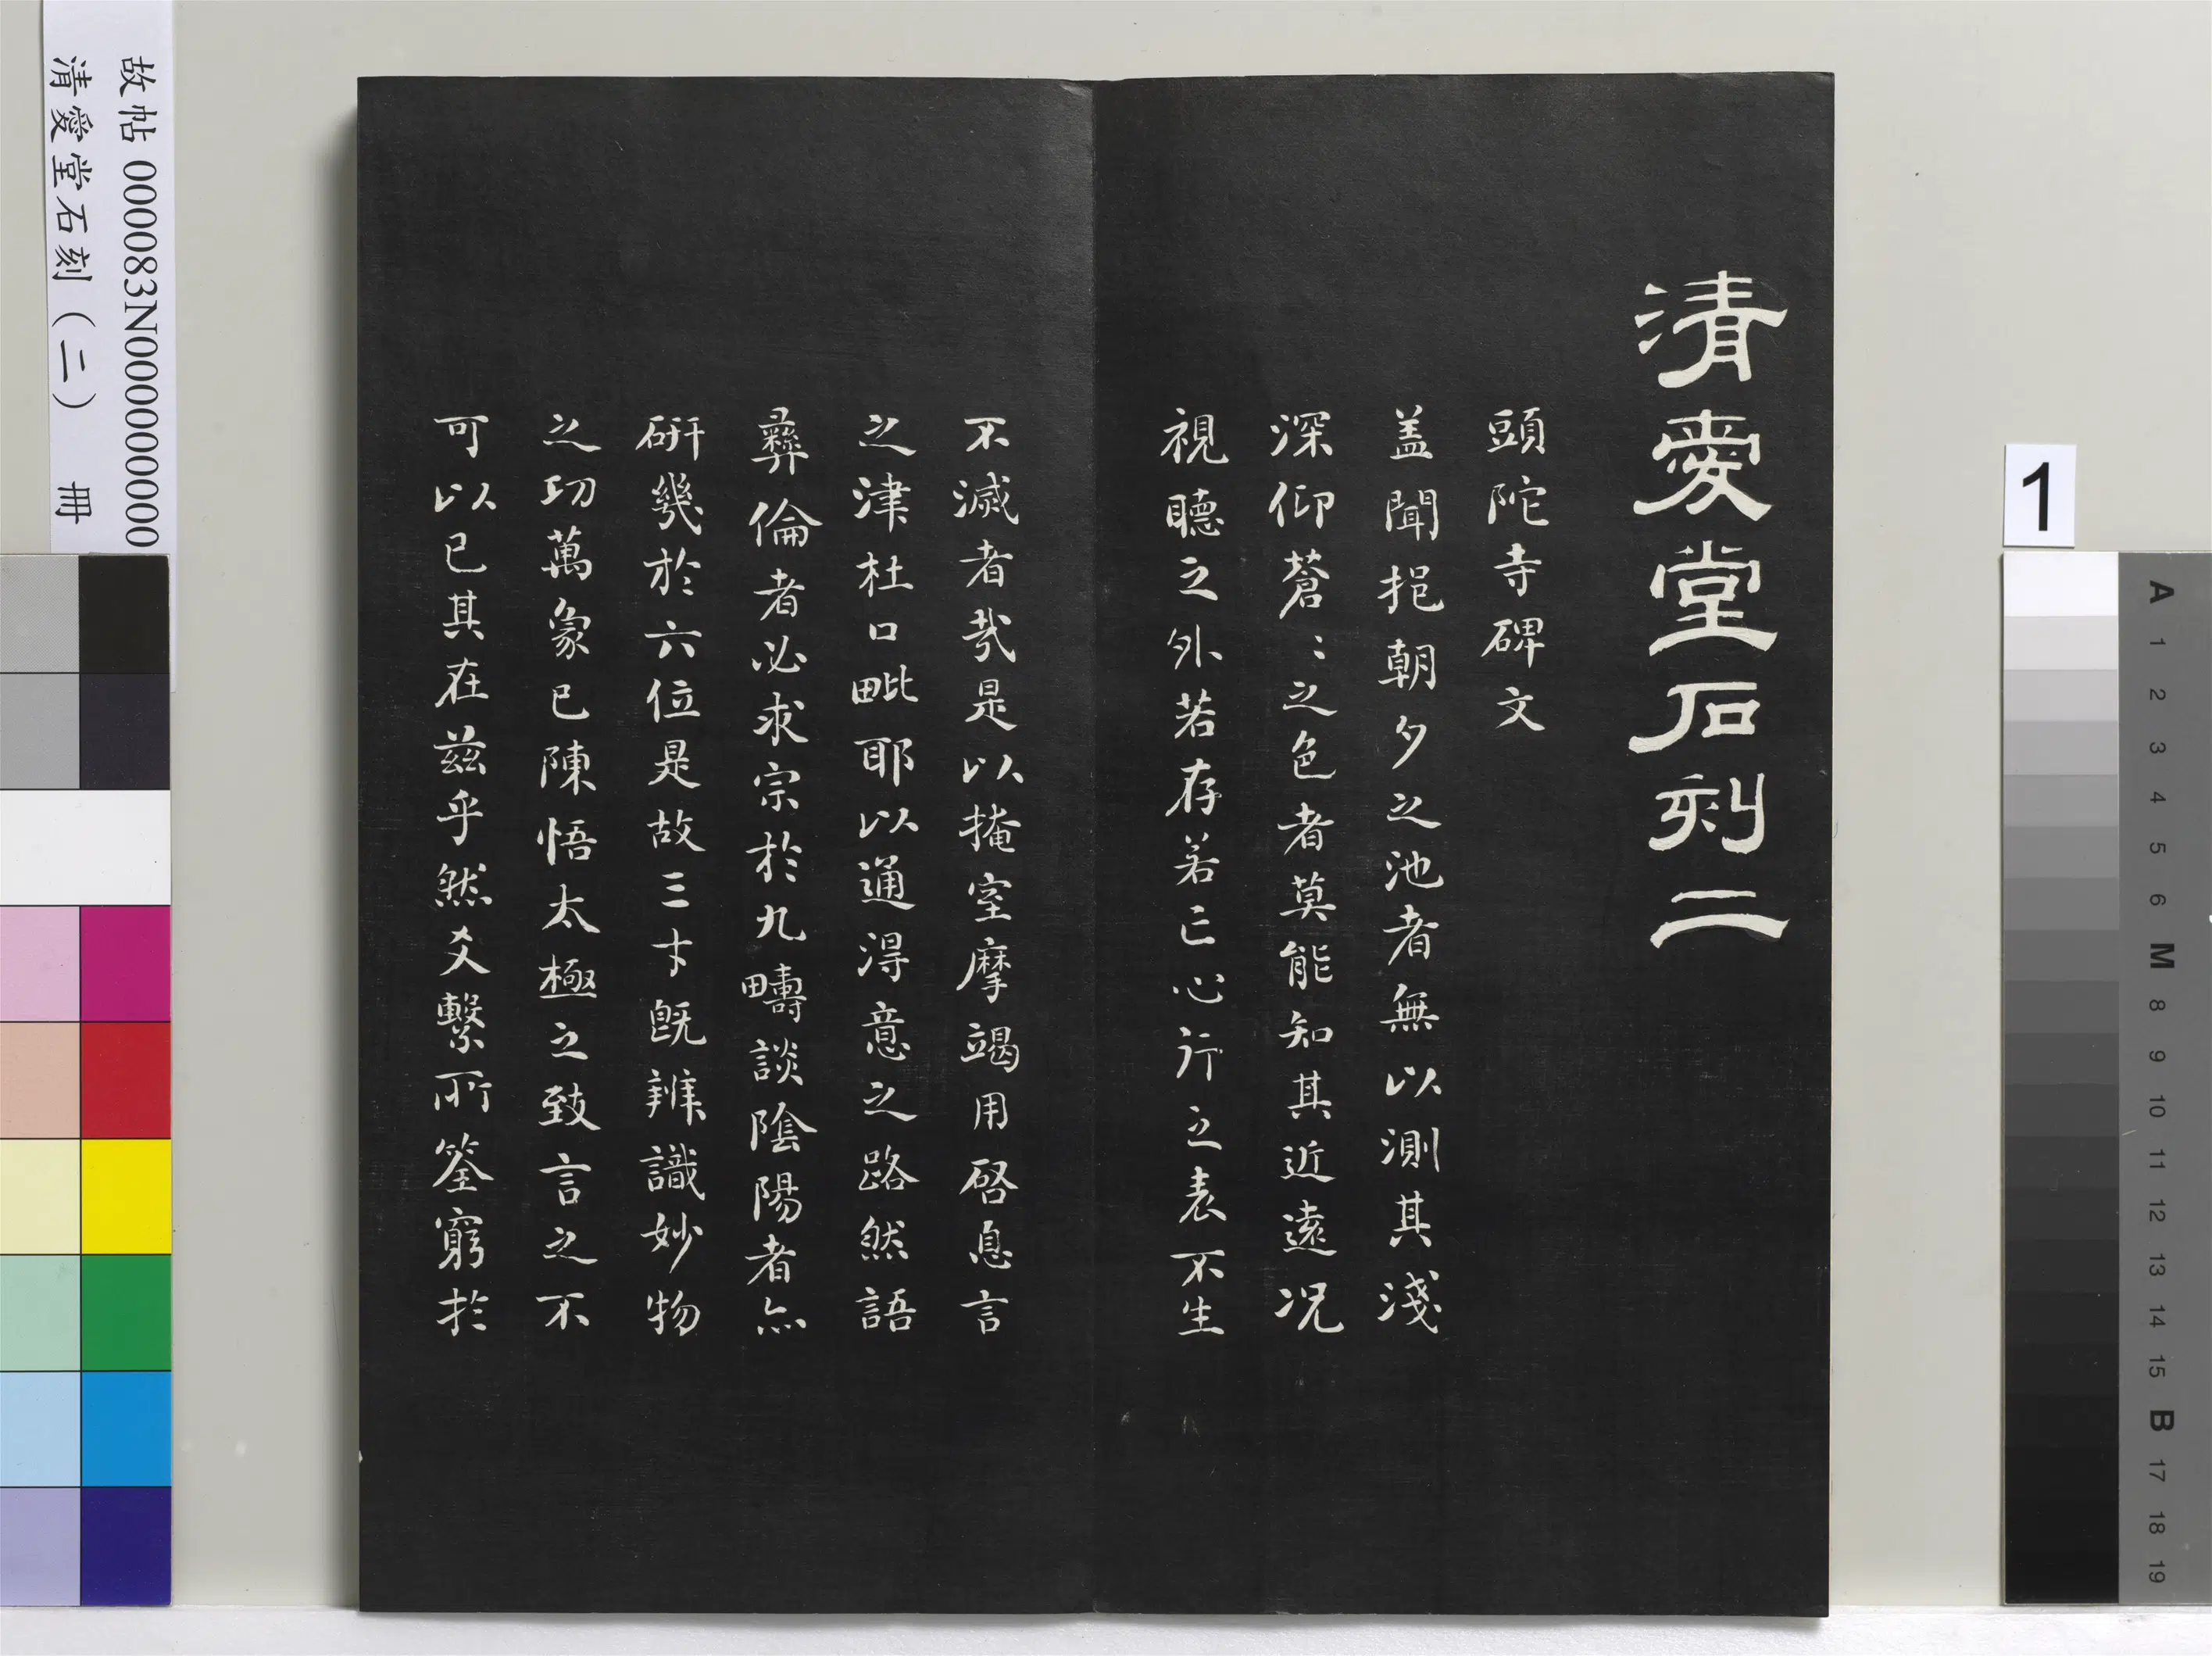 清愛堂石刻二
頭陀寺碑文
盖聞挹朝夕之池者無以測其淺
深仰蒼〻之色者莫能知其近遠況
視聽之外若存若亡心行之表不生
不滅者哉是以掩室摩竭用啓息言
之津杜口毗耶以通得意之路然語
彝倫者必求宗於九疇談陰陽者亦
研幾於六位是故三才既辨識妙物
之功萬象已陳悟太極之致言之不
可以已其在兹乎然爻繫所筌窮於
故帖 000083N000000000
清愛堂石刻（二） 冊
1
A
1
2
3
4
5
6
M
8
9
10
11
12
13
14
15
B
17
18
19